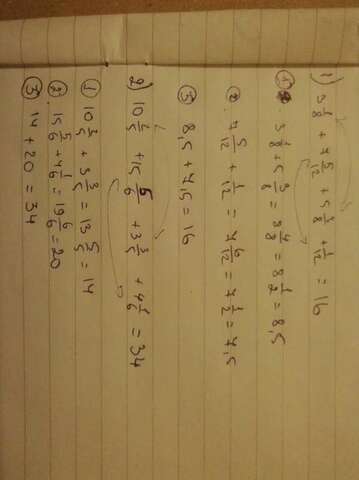 1) 3 1/8 + 7 5/12 + 5 3/8 + 1/12 = 16
① 3 1/8 + 5 3/8 = 8 4/8 = 8 1/2 = 8,5
② 7 5/12 + 1/12 = 7 6/12 = 7 1/2 = 7,5
③ 8,5 + 7,5 = 16
2) 10 2/5 + 15 5/6 + 3 3/5 + 4 1/6 = 34
① 10 2/5 + 3 3/5 = 13 5/5 = 14
② 15 5/6 + 4 1/6 = 19 6/6 = 20
③ 14 + 20 = 34